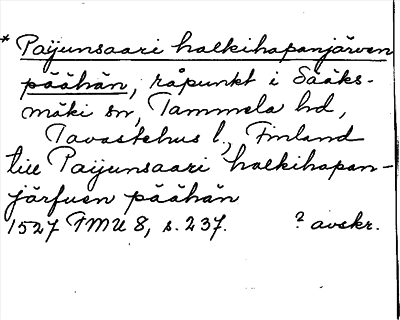 * Paijunsaari halkihapanjärven
päähän, råpunkt i Sääks-
mäki sn, Tammela hd,
Tavastehus l, Finland
till Paijunsaari halkihapan-
järfuen päähän
1527 FMU 8, s. 237. ? avskr.